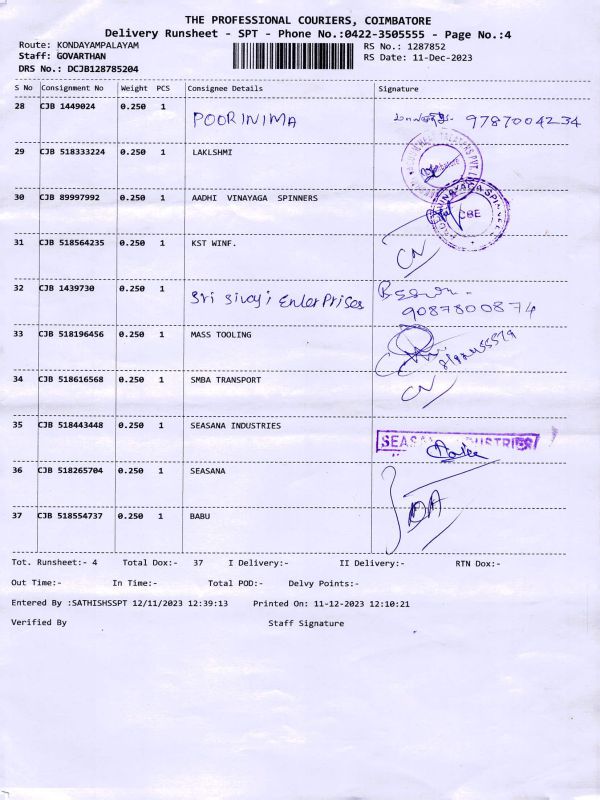 THE PROFESSIONAL COURIERS, COIMBATORE
Delivery Runsheet - SPT - Phone No.:0422-3505555 - Page No.:4
Route: KONDAYAMPALAYAM RS No.: 1287852
Staff: GOVARTHAN RS Date: 11-Dec-2023
DRS No.: DCJB128785204
S No Consignment No Weight PCS Consignee Details Signature
28 CJB 1449024 0.250 1 POORINIMA 9787004234
29 CJB 518333224 0.250 1 LAKLSHMI
30 CJB 89997992 0.250 1 AADHI VINAYAGA SPINNERS
CBE
31 CJB 518564235 0.250 1 KST WINF. CN
32 CJB 1439730 0.250 1 Sri Sivaji EnterPrises
9087800874
33 CJB 518196456 0.250 1 MASS TOOLING
34 CJB 518616568 0.250 1 SMBA TRANSPORT CN
35 CJB 518443448 0.250 1 SEASANA INDUSTRIES
36 CJB 518265704 0.250 1 SEASANA
37 CJB 518554737 0.250 1 BABU
Tot. Runsheet:- 4 Total Dox:- 37 I Delivery:- II Delivery:- RTN Dox:-
Out Time:- In Time:- Total POD:- Delvy Points:-
Entered By :SATHISHSSPT 12/11/2023 12:39:13 Printed On: 11-12-2023 12:10:21
Verified By Staff Signature